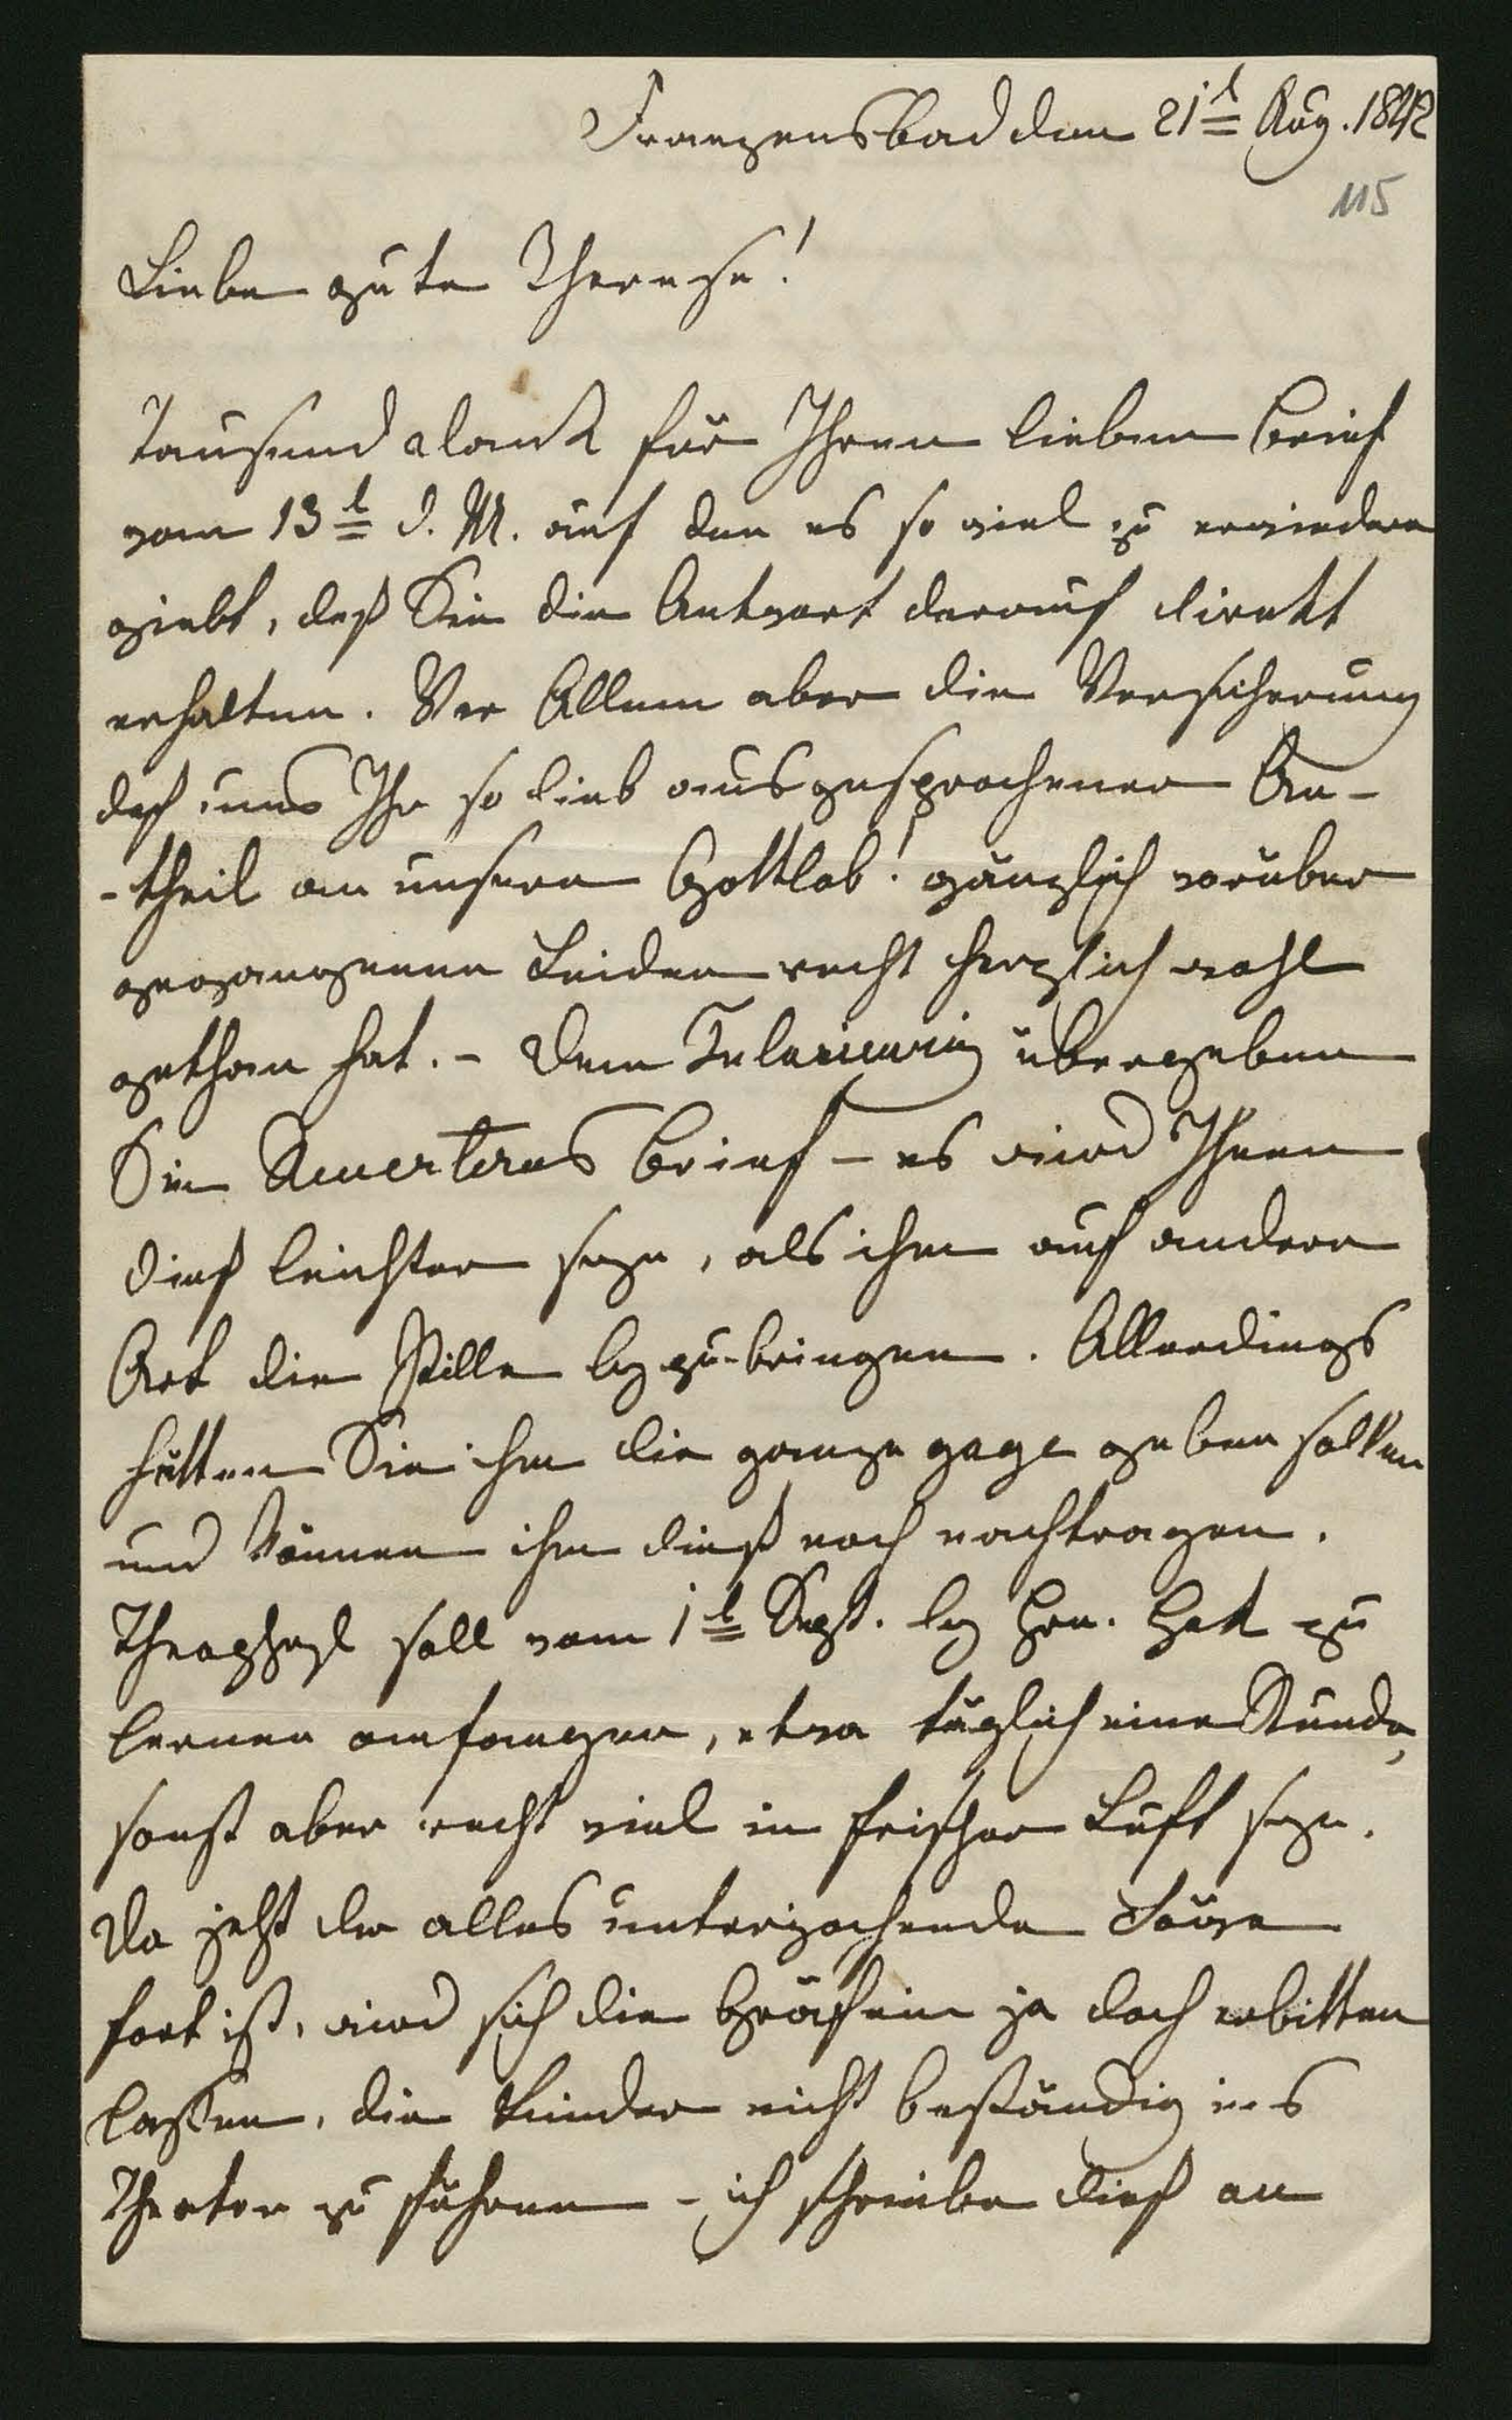 Franzensbad den 21t Aug. 1842
115
Liebe gute Therese!
Tausend Dank für Ihren lieben Brief
vom 13t d. M. auf den es so viel zu erwiedern
giebt, daß Sie die Antwort darauf direkt
erhalten. Vor Allem aber die Versicherung
daß uns Ihr so lieb ausgesprochener An-
-theil an unseren Gottlob! gänzlich vorüber
gegangenen Leiden recht herzlich wohl
gethan hat. - Dem übergeben
Sie Brief - es wird Ihnen
dieß leichter seyn, als ihm auf andere
Art die Pille beyzubringen. Allerdings
hätten Sie ihm die ganze gage geben sollen
und können ihm dieß noch nachtragen.
Theophyl soll vom 1t Sept. bey Hrn. zu
lernen anfangen, etwa täglich eine Stunde,
sonst aber recht viel in frischer Luft seyn.
Da jetzt der alles unterjochende
fort ist, wird sich die Gräfin ja doch erbitten
lassen, die Kinder nicht beständig ins
Theater zu führen - ich schreibe dieß an